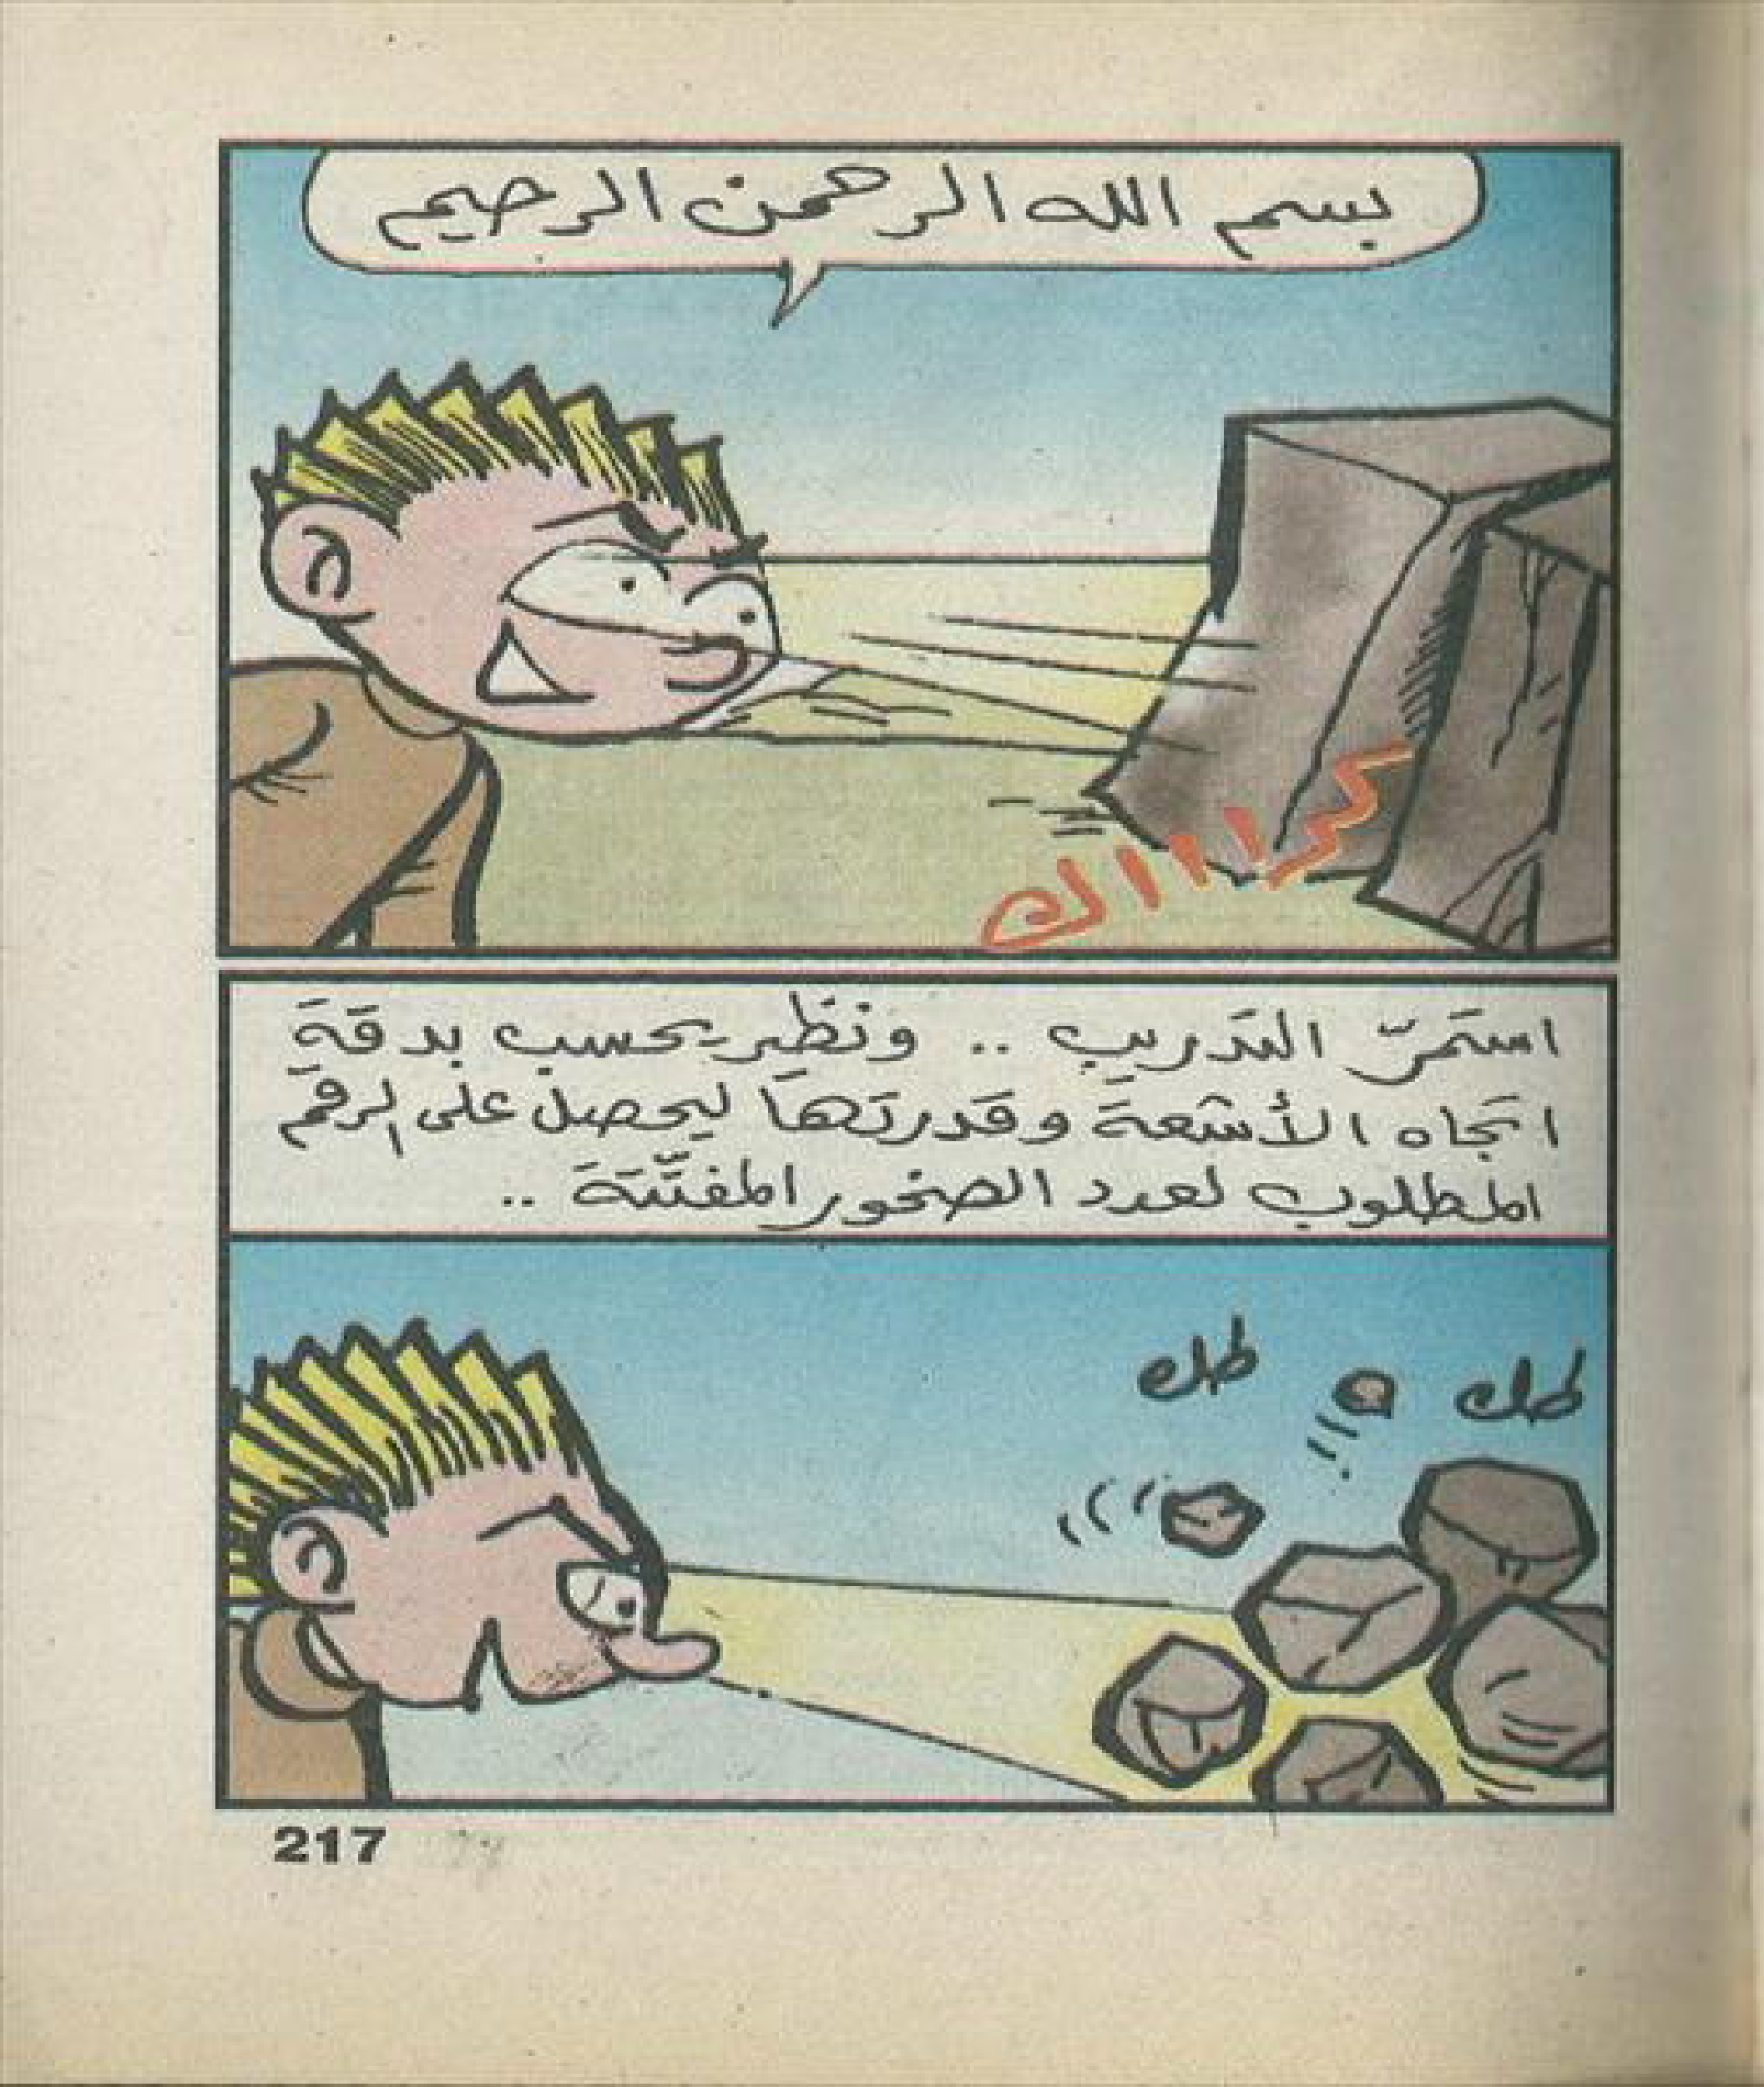 بسم الله الرحمن الرحيم
كراااك
استمرّ التدريب .. ونظير يحسب بدقة
اتجاه الأشعة وقدرتها ليحصل على الرقم
المطلوب لعدد الصخور المفتّتة ..
طك
طك
217